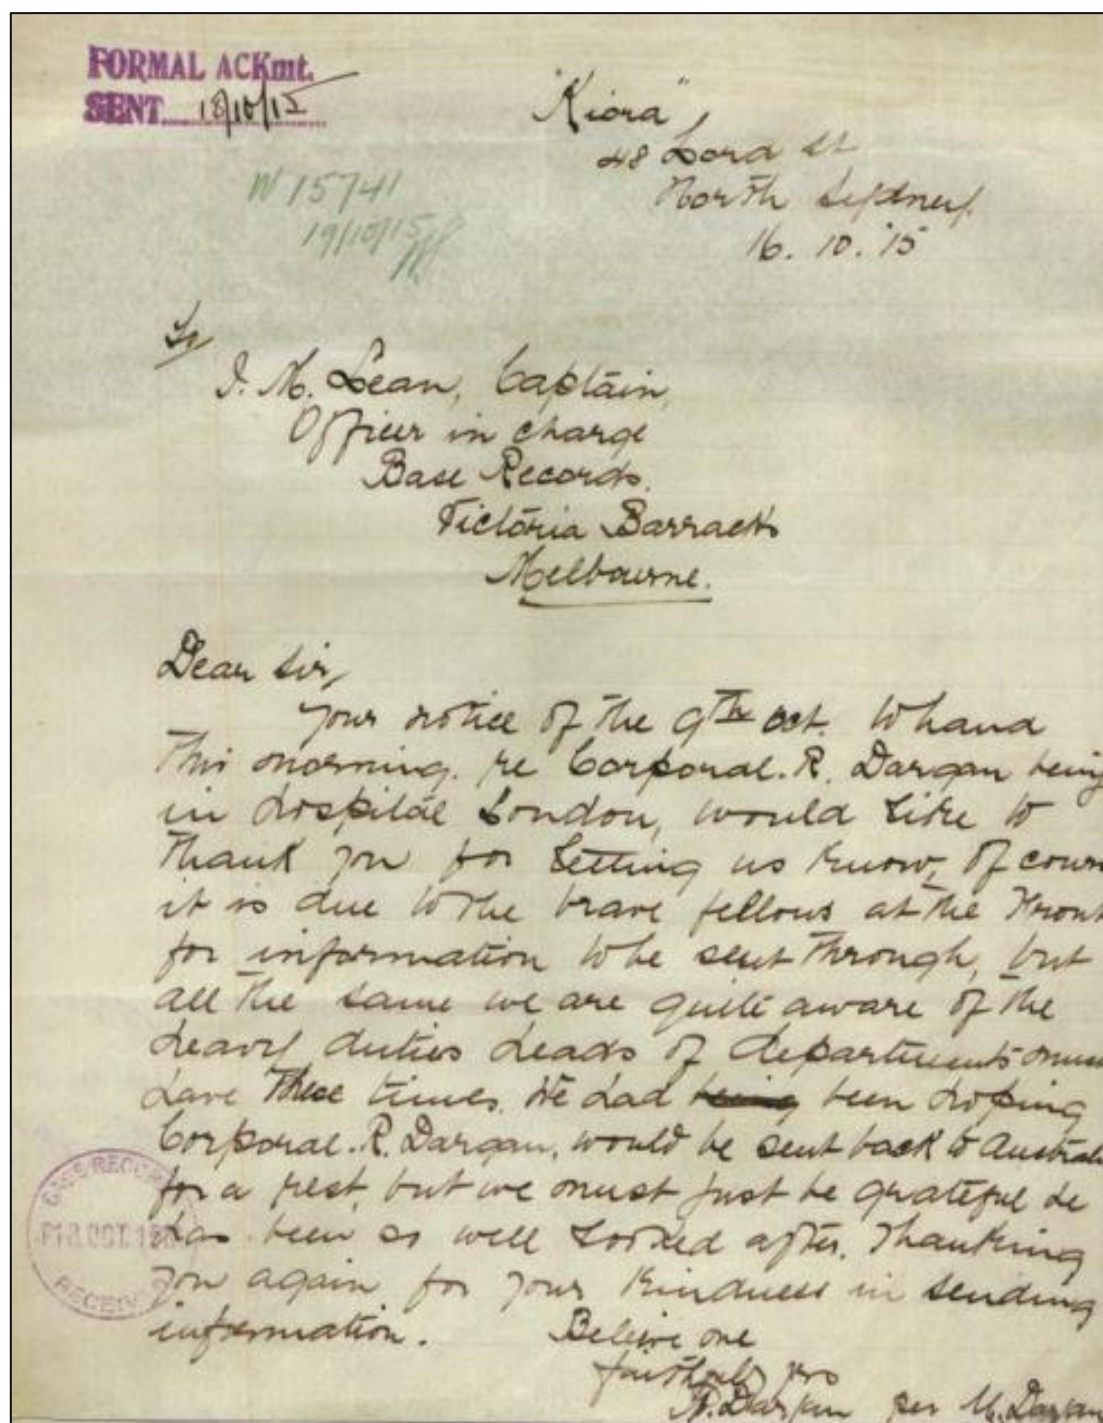 FORMAL ACKmt.
SENT 18/10/15
"Kiora",
48 Lord St
North Sydney.
16. 10. '15
W 15741
19/10/15
To
J. M. Lean, Captain,
Officer in charge
Base Records.
Victoria Barracks
Melbourne.
Dear Sir,
Your notice of the 9th Oct. to hand
this morning. re Corporal. R. Dargan being
in hospital London, would like to
thank you for letting us know, of cours
it is due to the brave fellows at the Front
for information to be sent through, but
all the same we are quite aware of the
heavy duties heads of departments mus
have these times. We had being been hoping
Corporal. R. Dargan, would be sent back to Austral
for a rest, but we must just be grateful he
has been so well looked after. Thanking
you again for your kindness in sending
information. Believe me
faithfully yrs
Dargan per M. Dargan
BASE RECOR
18 OCT. 19
RECEIV